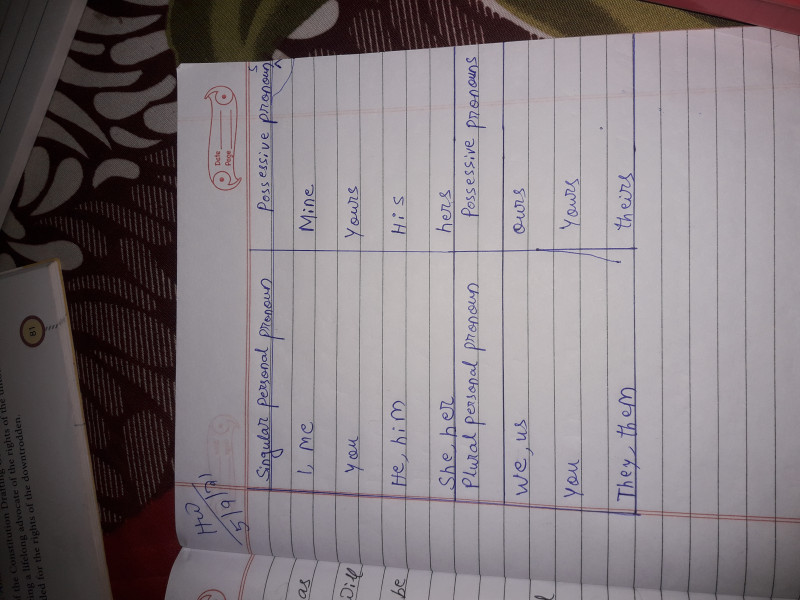 H.W
5/9/21
Date
Page
Singular personal pronoun Possessive pronouns
I, me Mine
You Yours
He, him His
She, her hers
Plural personal pronoun Possessive pronouns
We, us ours
You Yours
They, them theirs
as
Will
be
81
the Constitution Drafting
ing a lifelong advocate of the rights of the
ed for the rights of the downtrodden.